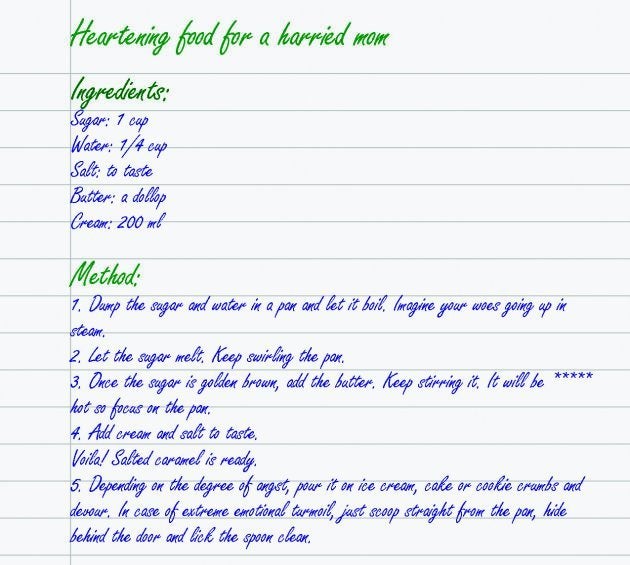 Heartening food for a harried mom
Ingredients:
Sugar: 1 cup
Water: 1/4 cup
Salt: to taste
Butter: a dollop
Cream: 200 ml
Method:
1. Dump the sugar and water in a pan and let it boil. Imagine your woes going up in
steam.
2. Let the sugar melt. Keep swirling the pan.
3. Once the sugar is golden brown, add the butter. Keep stirring it. It will be *****
hot so focus on the pan.
4. Add cream and salt to taste.
Voila! Salted caramel is ready.
5. Depending on the degree of angst, pour it on ice cream, cake or cookie crumbs and
devour. In case of extreme emotional turmoil, just scoop straight from the pan, hide
behind the door and lick the spoon clean.